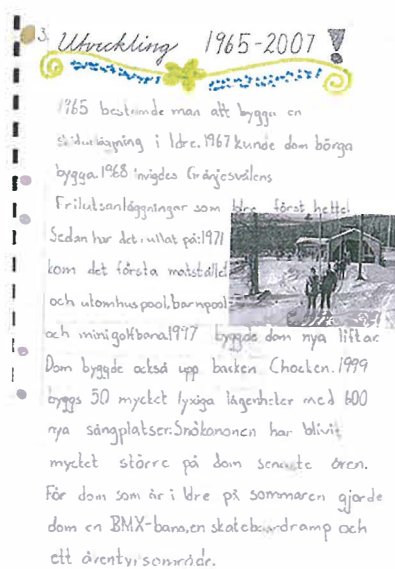 3. Utveckling 1965-2007!
1965 bestämde man att bygga en
skidanläggning i Idre. 1967 kunde dom börga
bygga. 1968 invigdes Gränjesvålens
Frilutsanläggningar som Idre först hette!
Sedan har det rullat på: 1971
kom det första matstället
och utomhuspool, barnpool
och minigolfbana. 1997 byggde dom nya liftar.
Dom byggde också upp backen Chocken. 1999
byggs 50 mycket lyxiga lägenheter med 600
nya sängplatser. Snökanonen har blivit
mycket större på dom senaste åren.
För dom som är i Idre på sommaren gjorde
dom en BMX-bana, en skateboardramp och
ett äventyrsområde.